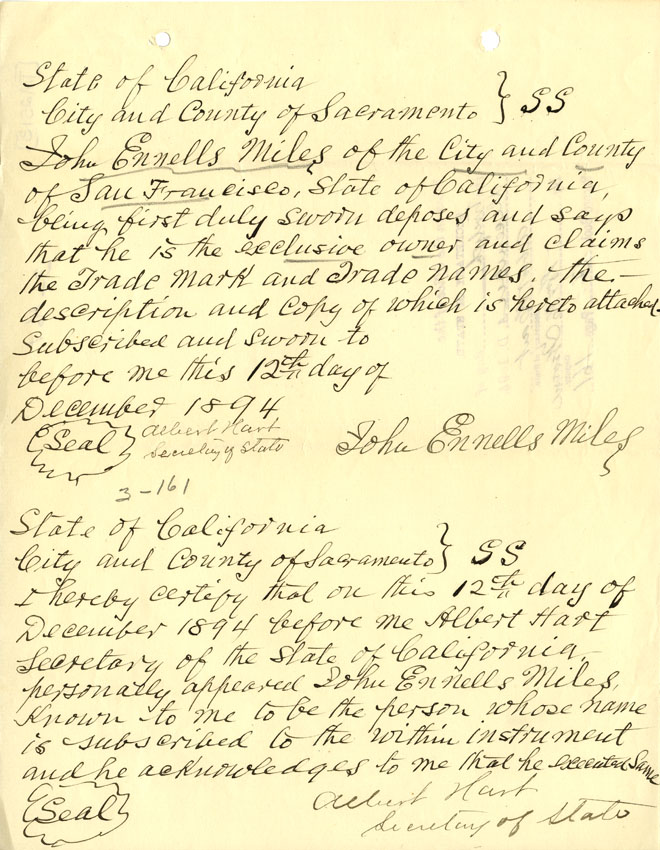 State of California
City and County of Sacramento } SS
John Ennells Miles of the City and County
of San Francisco, State of California,
being first duly sworn deposes and says
that he is the exclusive owner and claims
the Trade Mark and Trade names. the—
description and copy of which is hereto attached.
Subscribed and sworn to
before me this 12th day of
December 1894
(Seal) Albert Hart
Secretary of State
John Ennells Miles
3-161
State of California
City and County of Sacramento } SS
I hereby certify that on this 12th day of
December 1894 before me Albert Hart
Secretary of the State of California,
personally appeared John Ennells Miles,
Known to me to be the person whose name
is subscribed to the within instrument
and he acknowledges to me that he executed same
(Seal) Albert Hart
Secretary of State